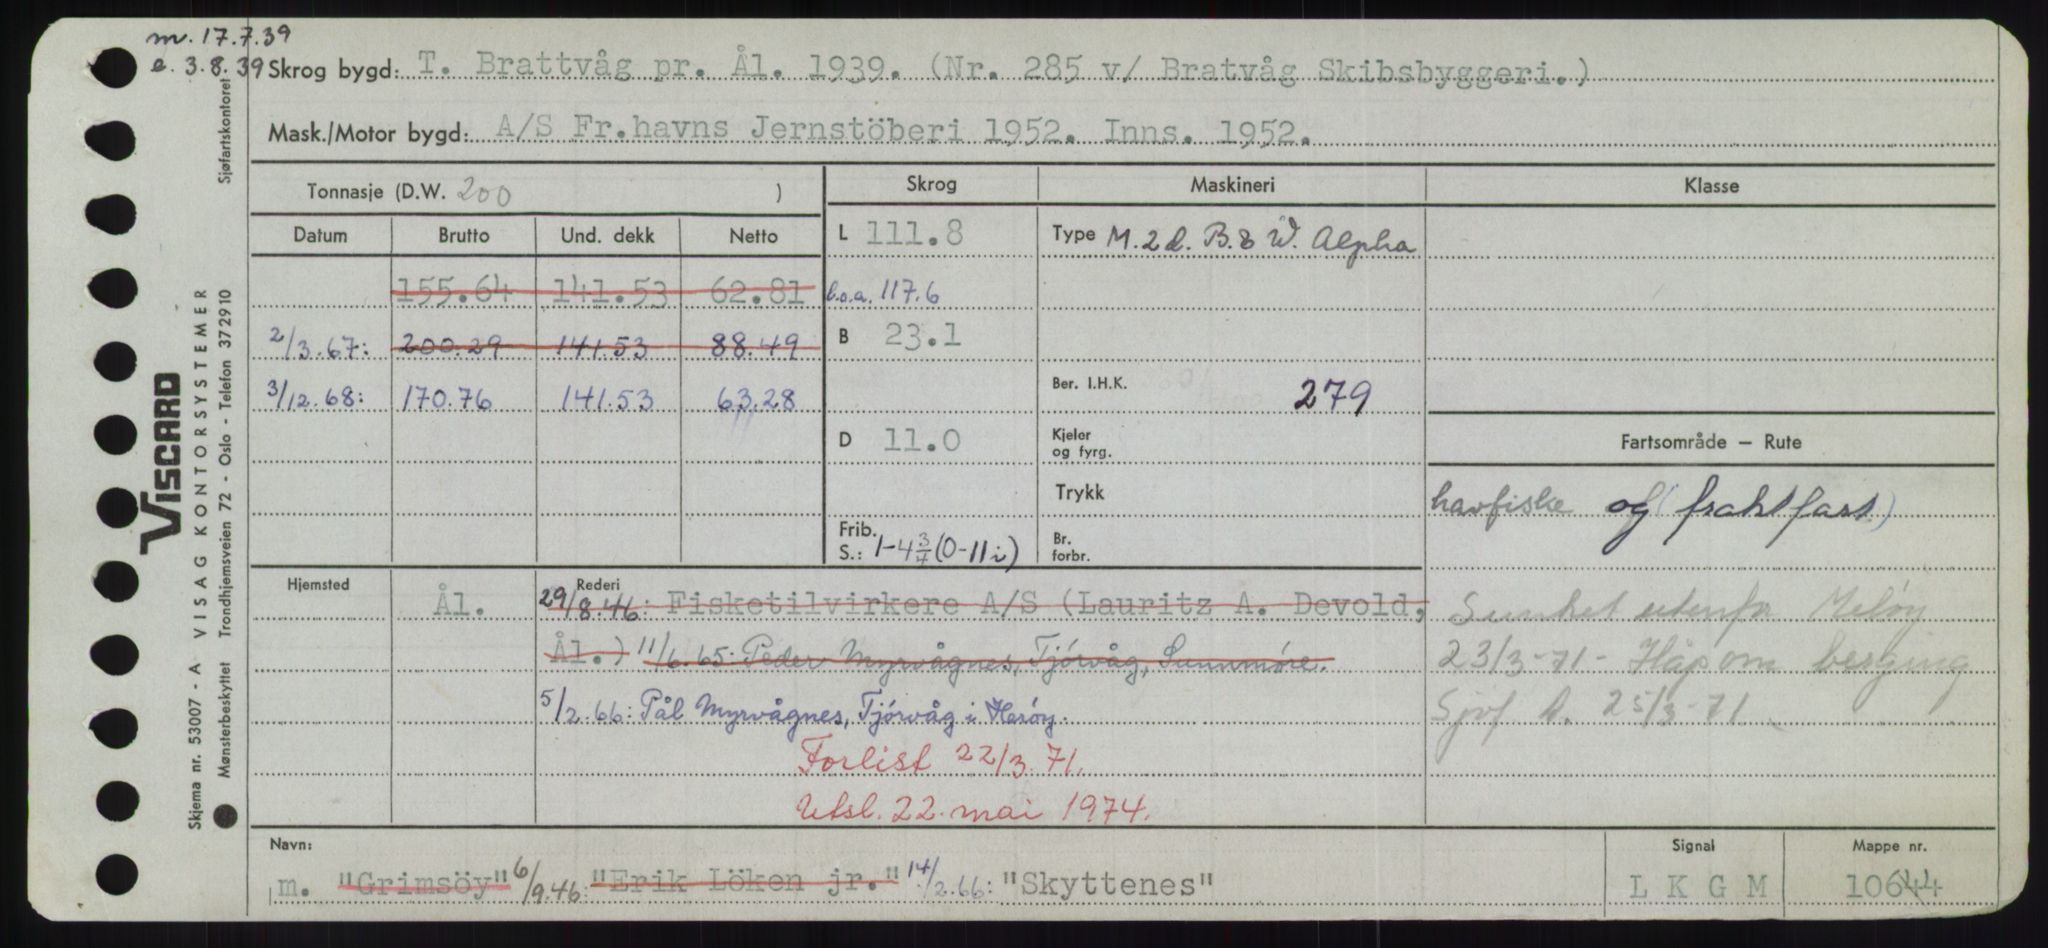 m. 17.7.39
e. 3.8.39 Skrog bygd: T. Brattvåg pr. Ål. 1939. (Nr. 285 v/ Bratvåg Skibsbyggeri.)
Mask./Motor bygd: A/S Fr.havns Jernstöberi 1952. Inns. 1952.
Tonnasje (D.W. 200 ) Skrog Maskineri Klasse
Datum Brutto Und. dekk Netto L 111.8 Type M.2d. B.& W. Alpha
155.64 141.53 62.81 l.o.a. 117.6
2/3.67: 200.29 141.53 88.49 B 23.1
3/12.68: 170.76 141.53 63.28 Ber. I.H.K. 279
D 11.0 Kjeler og fyrg. Fartsområde – Rute
Trykk havfiske og (fraktfart)
Frib. S.: 1-4 3/4 (0-11 i) Br. forbr.
Hjemsted Ål. Rederi 29/8.46: Fisketilvirkere A/S (Lauritz A. Devold,
Ål.) 11/6.65: Peder Myrvågnes, Tjörvåg, Sunnmöre.
5/2.66: Pål Myrvågnes, Tjörvåg i Heröy.
Forlist 22/3.71.
Utsl. 22. mai 1974.
Sunket utenfor Melöy
23/3-71 - Håp om berging
Sjöf 25/3-71
Navn: Signal Mappe nr.
m. "Grimsöy" 6/9.46: "Erik Löken jr." 14/2.66: "Skyttenes" L K G M 10644
Skjema nr. 53007 - A VISAG KONTORSYSTEMER
Viscard
Mønsterbeskyttet Trondhjemsveien 72 - Oslo - Telefon 372910
Sjøfartskontoret